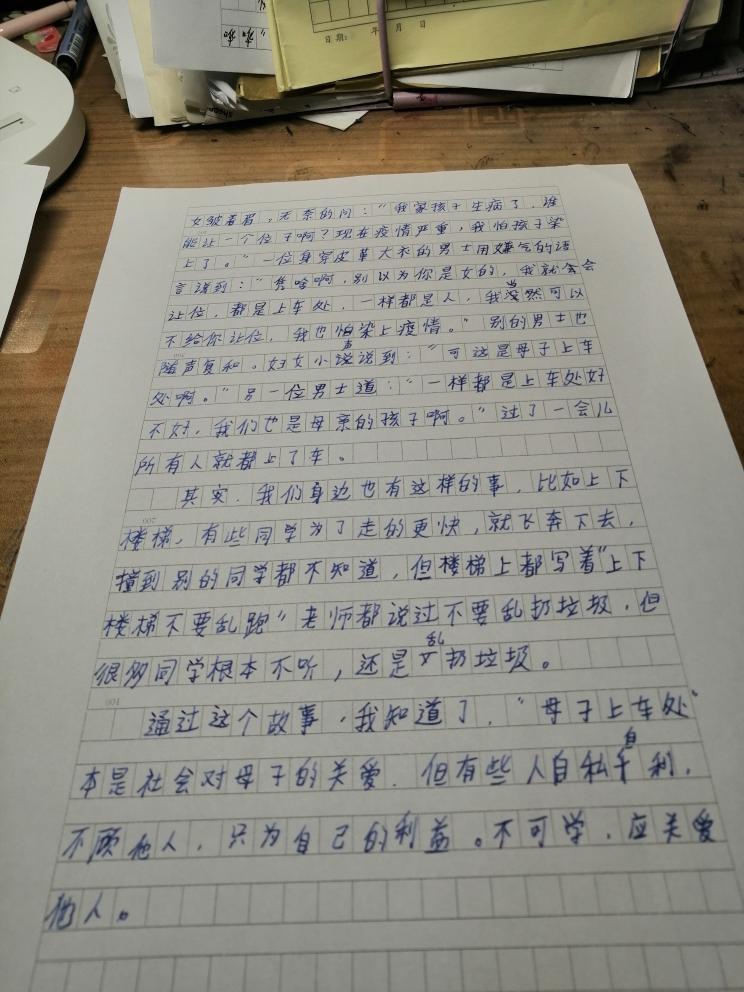 日期： 年 月 日
女皱着眉，无奈的问：“我家孩子生病了，谁
能让一个位子啊？现在疫情严重，我怕孩子染
上了。”一位身穿皮革大衣的男士用嫌气的语
言说到：“焦啥啊，别以为你是女的，我就会会
让位，都是上车处，一样都是人，我当然可以
不给你让位，我也怕染上疫情。”别的男士也
随声复和。妇女小声说到：“可这是母子上车
处啊。”另一位男士道：“一样都是上车处好
不好，我们也是母亲的孩子啊。”过了一会儿
所有人就都上了车。
其实，我们身边也有这样的事，比如上下
楼梯，有些同学为了走的更快，就飞奔下去，
撞到别的同学都不知道，但楼梯上都写着“上下
楼梯不要乱跑”老师都说过不要乱扔垃圾，但
很多同学根本不听，还是乱扔垃圾。
通过这个故事，我知道了，“母子上车处”
本是社会对母子的关爱，但有些人自私自利，
不顾他人，只为自己的利益。不可学，应关爱
他人。